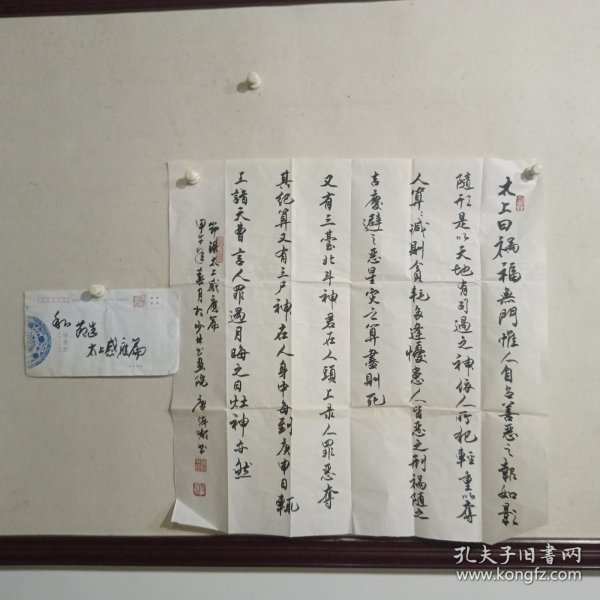 太上曰禍福無門惟人自召善惡之報如影
隨形是以天地有司過之神依人所犯輕重以奪
人算算減則貧耗多逢憂患人皆惡之刑禍隨之
吉慶避之惡星災之算盡則死
又有三臺北斗神君在人頭上錄人罪惡奪
其紀算又有三尸神在人身中每到庚申日輒
上詣天曹言人罪過月晦之日灶神亦然
節錄太上感應篇
甲午年春月於少林書畫院
太上感应篇
孔夫子旧书网
www.kongfz.com